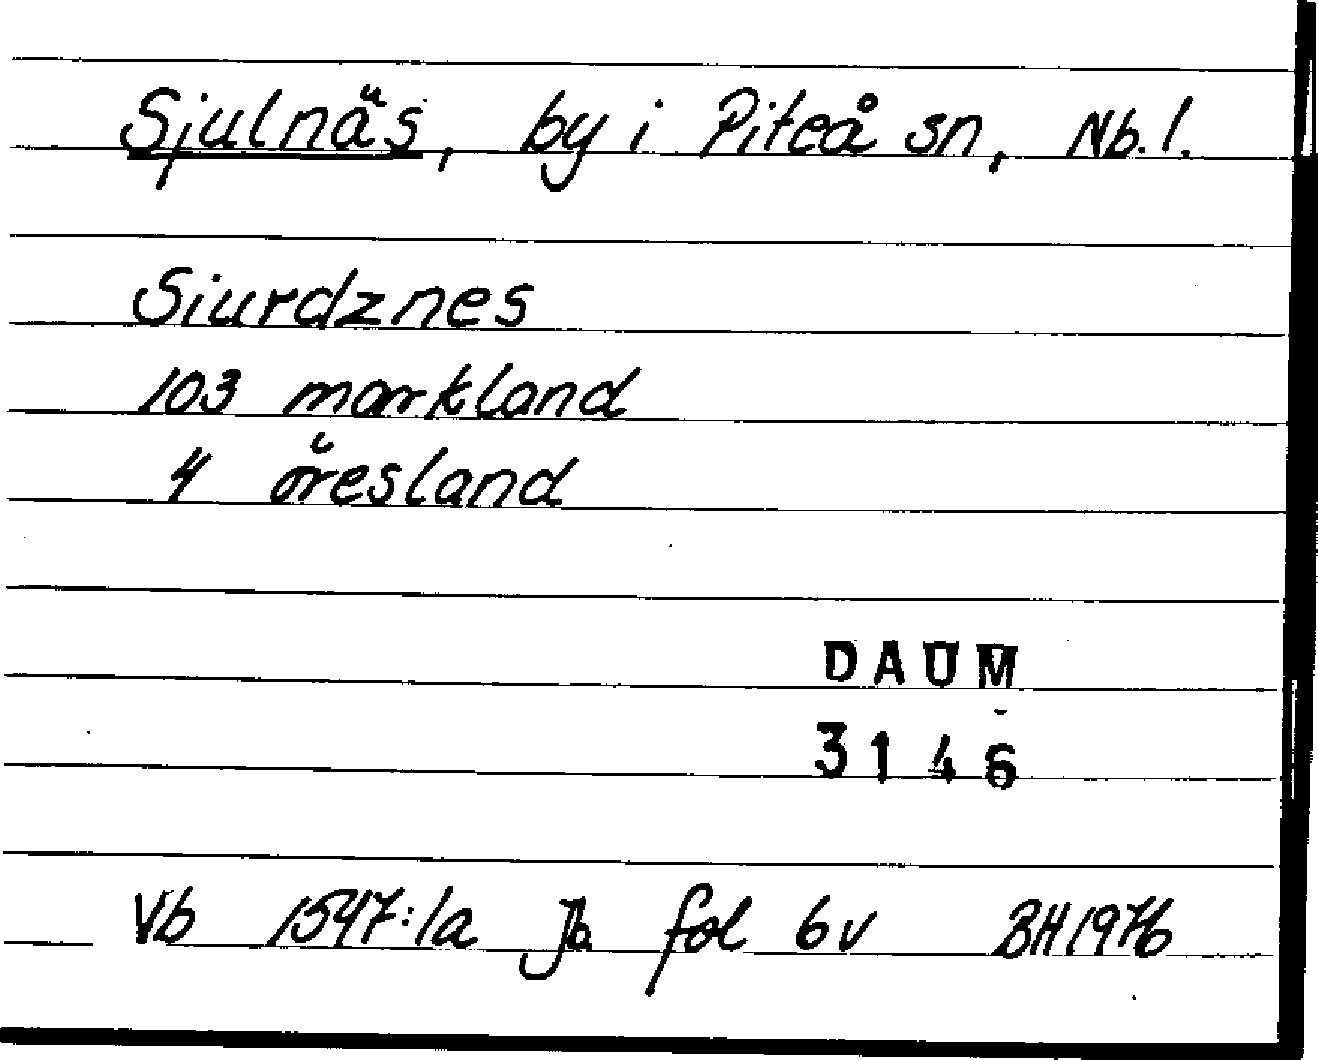 Sjulnäs, by i Piteå sn, Nb. l.
Siurdznes
103 markland
4 öresland
DAUM
3146
Vb 1547:1a Jb fol 6v BH1976